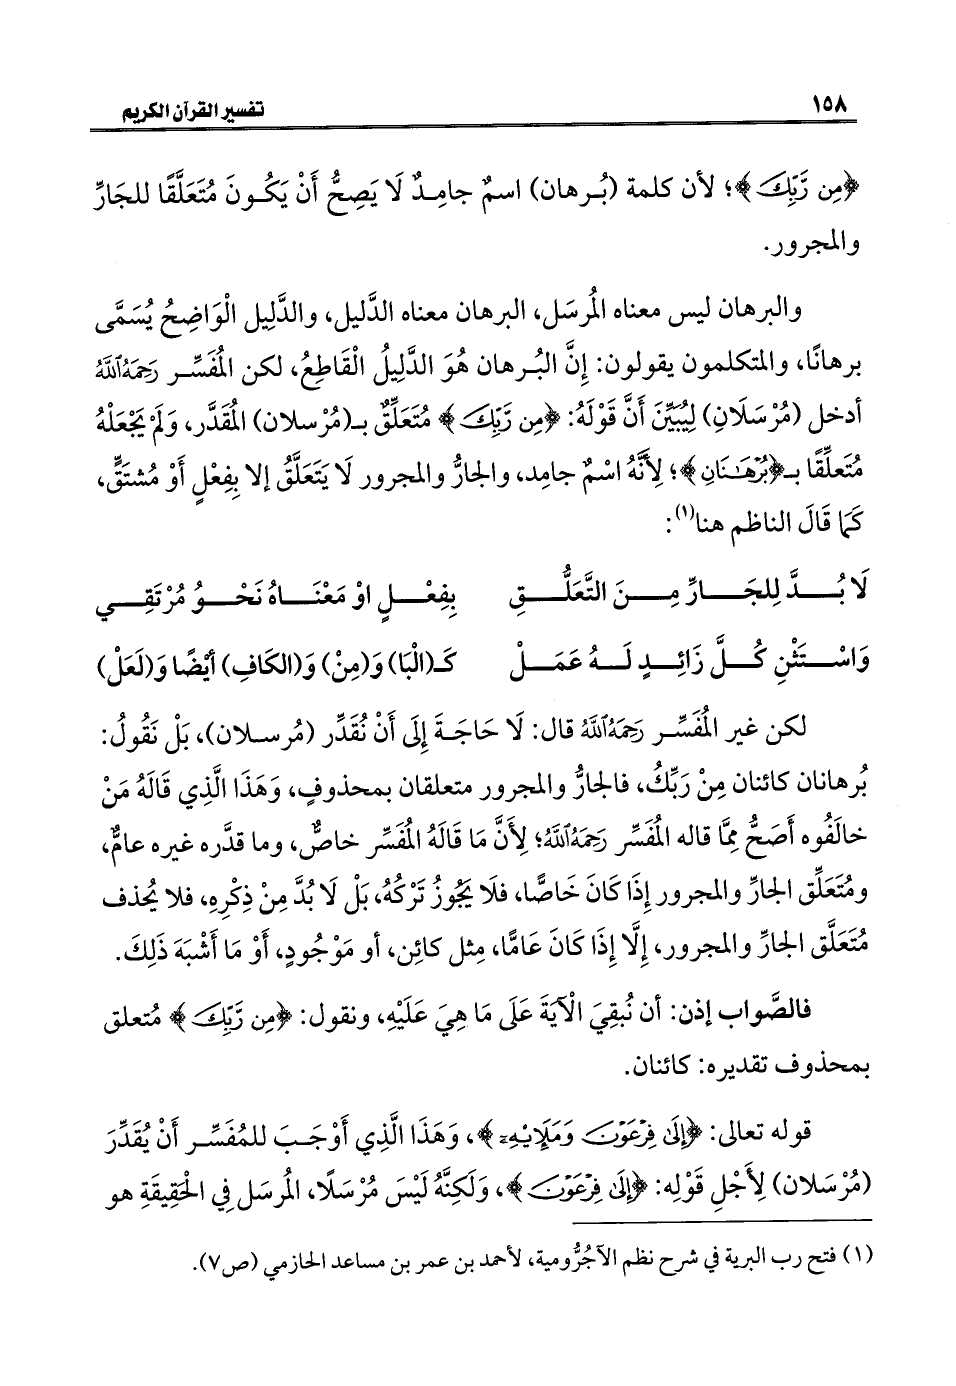 ١٥٨ تفسير القرآن الكريم
﴿مِن رَّبِّكَ﴾؛ لأن كلمة (بُرهان) اسمٌ جامِدٌ لَا يَصِحُّ أَنْ يَكُونَ مُتَعَلَّقًا للجَارِّ
والمجرور.
والبرهان ليس معناه المُرسَل، البرهان معناه الدَّليل، والدَّلِيل الْوَاضِحُ يُسَمَّى
برهانًا، والمتكلمون يقولون: إِنَّ البُرهان هُوَ الدَّلِيلُ الْقَاطِعُ، لكن المُفَسِّر رَحِمَهُ ٱللَّهُ
أدخل (مُرْسَلَانِ) لِيُبَيِّنَ أَنَّ قَوْلَهُ: ﴿مِن رَّبِّكَ﴾ مُتَعَلِّقٌ بـ(مُرْسلان) المُقَدَّر، وَلَمْ يَجْعَلْهُ
مُتَعلِّقًا بـ﴿بُرْهَـٰنَانِ﴾؛ لِأَنَّهُ اسْمٌ جامِد، والجارُّ والمجرور لَا يَتَعَلَّقُ إلا بِفِعْلٍ أَوْ مُشتَقٍّ،
كَمَا قَالَ الناظم هنا(١):
لَا بُـــدَّ لِلجَـــارِّ مِـــنَ التَّعَلُّـــقِ بِفِعْـــلٍ اوْ مَعْنَـــاهُ نَحْـــوُ مُرْتَقِـــي
وَاسْـــتَثْنِ كُـــلَّ زَائِـــدٍ لَـــهُ عَمَـــلْ كَـ(الْبَا) وَ(مِنْ) وَ(الكَافِ) أَيْضًا وَ(لَعَلْ)
لكن غير المُفَسِّر رَحِمَهُ ٱللَّهُ قال: لَا حَاجَةَ إِلَى أَنْ نُقَدِّر (مُرسلان)، بَلْ نَقُولُ:
بُرهانان كائنان مِنْ رَبِّكُ، فالجارُّ والمجرور متعلقان بمحذوفٍ، وَهَذَا الَّذِي قَالَهُ مَنْ
خالَفُوه أَصَحُّ مِمَّا قاله المُفَسِّر رَحِمَهُ ٱللَّهُ؛ لِأَنَّ مَا قَالَهُ المُفَسِّر خاصٌّ، وما قدَّره غيره عامٌّ،
ومُتَعَلِّق الجارِّ والمجرور إِذَا كَانَ خَاصًّا، فلَا يَجُوزُ تَرْكُهُ، بَلْ لَا بُدَّ مِنْ ذِكْرِهِ، فلا يُحذف
مُتَعَلَّق الجارِّ والمجرور، إِلَّا إِذَا كَانَ عَامًّا، مِثل كائن، أو مَوْجُودٍ، أَوْ مَا أَشْبَهَ ذَلِكَ.
فالصَّواب إذن: أن نُبقِيَ الْآيَةَ عَلَى مَا هِيَ عَلَيْهِ، ونقول: ﴿مِن رَّبِّكَ﴾ مُتعلق
بمحذوف تقديره: كائنان.
قوله تعالى: ﴿إِلَىٰ فِرْعَوْنَ وَمَلَإِيْهِۦ﴾، وَهَذَا الَّذِي أَوْجَبَ للمُفَسِّر أَنْ يُقَدِّرَ
(مُرْسَلان) لِأَجْلِ قَوْلِه: ﴿إِلَىٰ فِرْعَوْنَ﴾، وَلَكِنَّهُ لَيْسَ مُرْسَلًا، المُرسَل فِي الحَقِيقَةِ هو
(١) فتح رب البرية في شرح نظم الآجُرُّومية، لأحمد بن عمر بن مساعد الحازمي (ص٧).